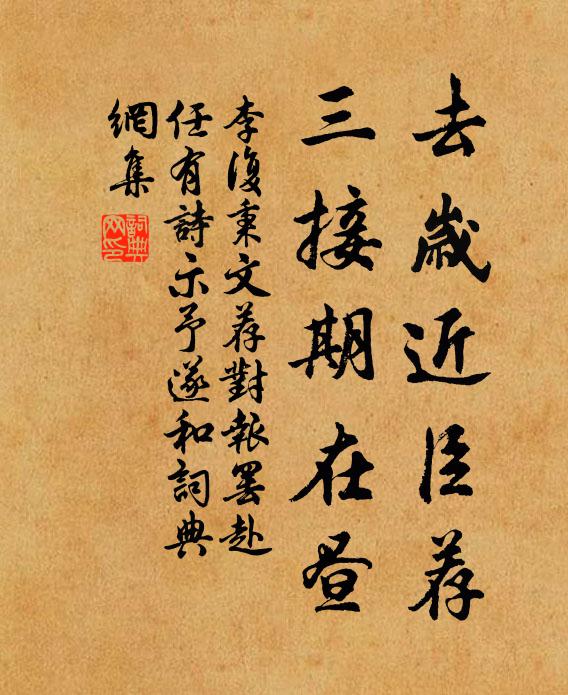 去歲近臣荐
三接期在晝
李復秉文荐對報罢赴
任有詩示予遂和詞典
網集
詞典
网印